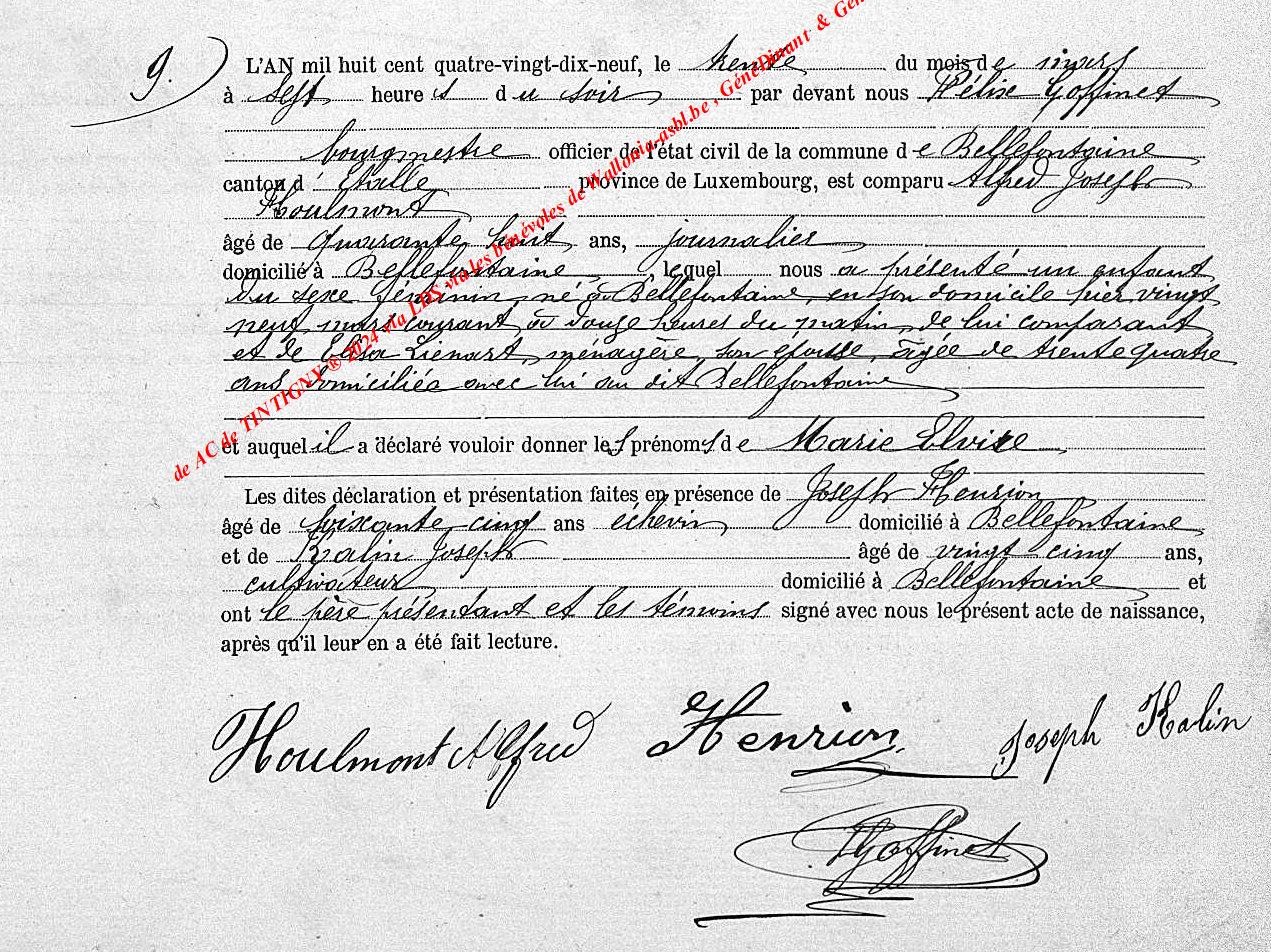 9.
L'AN mil huit cent quatre-vingt-dix-neuf, le trente du mois de mars
à sept heures du soir par devant nous Félix Goffinet
bourgmestre officier de l'état civil de la commune de Bellefontaine
canton d'Etalle province de Luxembourg, est comparu Alfred Joseph
Houlmont
âgé de quarante huit ans, journalier
domicilié à Bellefontaine, lequel nous a présenté un enfant
du sexe féminin, né à Bellefontaine, en son domicile hier vingt
neuf mars courant à douze heures du matin, de lui comparant
et de Elisa Lienart, ménagère, son épouse, âgée de trente quatre
ans, domiciliée avec lui au dit Bellefontaine
et auquel il a déclaré vouloir donner les prénoms de Marie Elvire
Les dites déclaration et présentation faites en présence de Joseph Henrion
âgé de soixante cinq ans échevin domicilié à Bellefontaine
et de Kalin Joseph âgé de vingt cinq ans,
cultivateur domicilié à Bellefontaine et
ont le père présentant et les témoins signé avec nous le présent acte de naissance,
après qu'il leur en a été fait lecture.
Houlmont Alfred Henrion Joseph Kalin
Goffinet
de AC de TINTIGNY ® 2024 via LDS via les bénévoles de Wallonia-asbl.be, GénéDinant & Gén